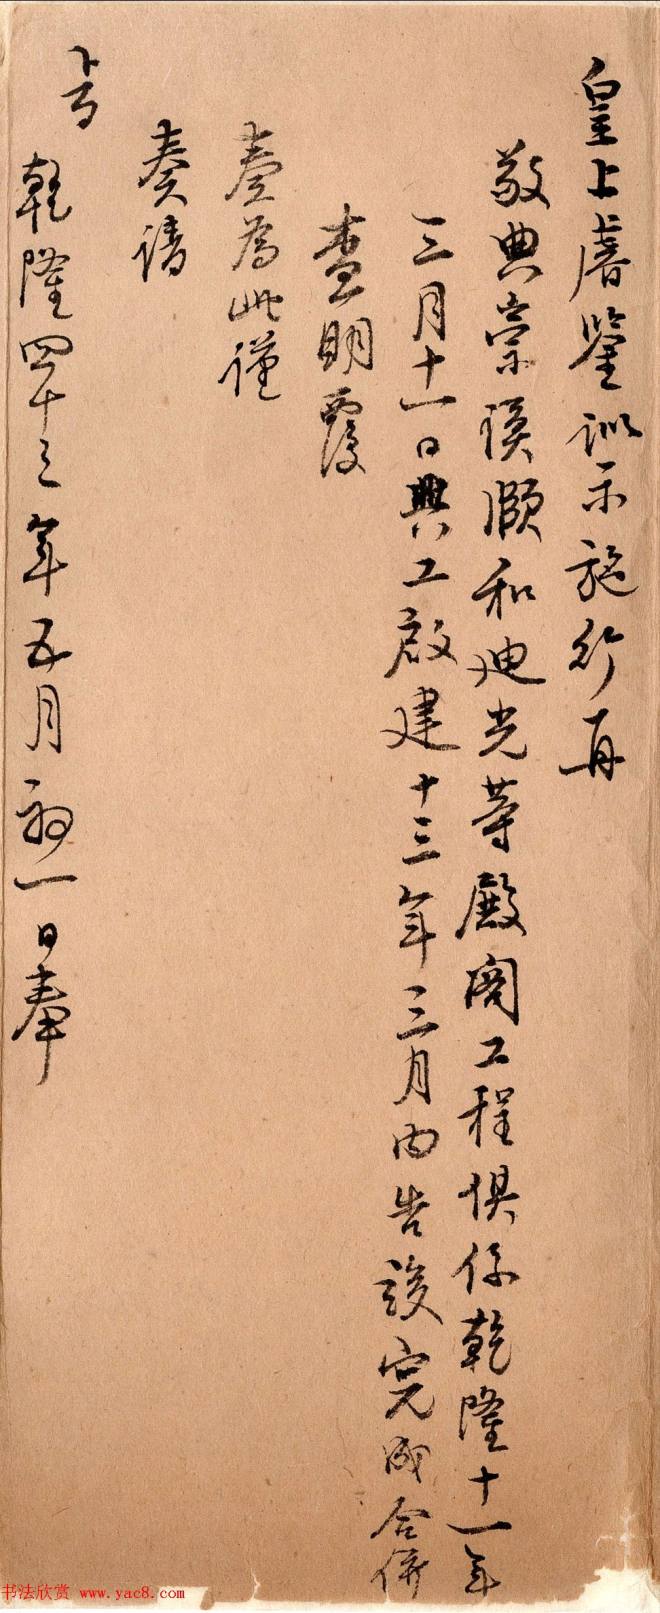 皇上睿鑒訓示施行再
敬典崇謨頤和迪光等殿閣工程俱係乾隆十一年
三月十一日興工啟建十三年三月內告竣完成合併
查明覆
奏為此謹
奏請
旨
乾隆四十三年五月初一日奉
书法欣赏 www.yac8.com